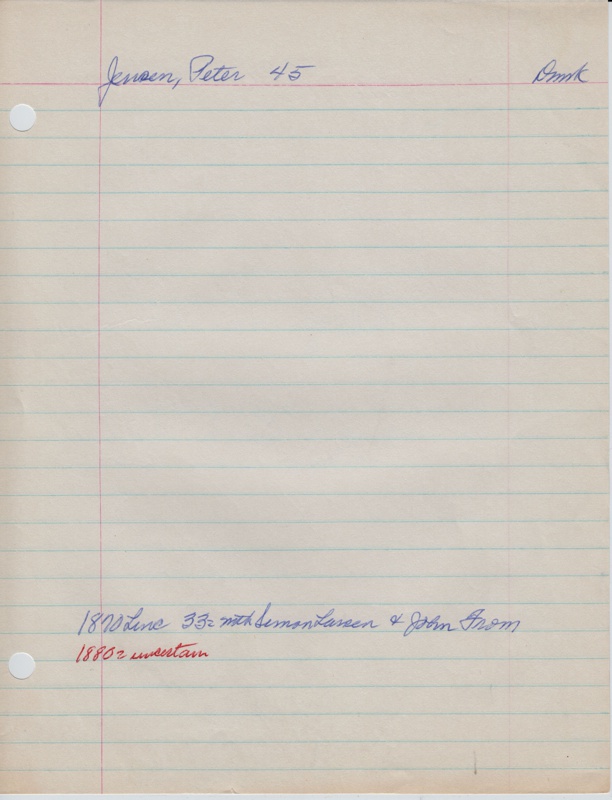 Jensen, Peter 45 Dmrk
1870 Linc 33= with Simon Larsen & John From
1880= uncertain